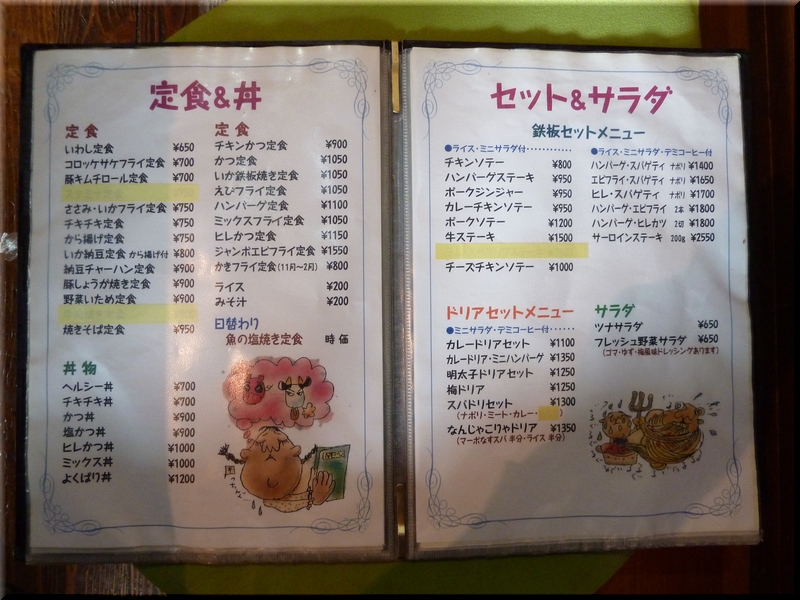 定食&丼
定食
いわし定食 ¥650
コロッケサケフライ定食 ¥700
豚キムチロール定食 ¥700
¥750
ささみ・いかフライ定食 ¥750
チキチキ定食 ¥750
から揚げ定食 ¥750
いか納豆定食 から揚げ付 ¥800
納豆チャーハン定食 ¥900
豚しょうが焼き定食 ¥900
野菜いため定食 ¥900
焼きそば定食 ¥950
丼物
ヘルシー丼 ¥700
チキチキ丼 ¥700
かつ丼 ¥900
塩かつ丼 ¥900
ヒレかつ丼 ¥1000
ミックス丼 ¥1000
よくばり丼 ¥1200
定食
チキンかつ定食 ¥900
かつ定食 ¥1050
いか鉄板焼き定食 ¥1050
えびフライ定食 ¥1050
ハンバーグ定食 ¥1100
ミックスフライ定食 ¥1050
ヒレかつ定食 ¥1150
ジャンボエビフライ定食 ¥1550
かきフライ定食(11月〜2月) ¥800
ライス ¥200
みそ汁 ¥200
日替わり
魚の塩焼き定食 時価
MENU
セット&サラダ
鉄板セットメニュー
●ライス・ミニサラダ付
チキンソテー ¥800
ハンバーグステーキ ¥950
ポークジンジャー ¥950
カレーチキンソテー ¥950
ポークソテー ¥1200
牛ステーキ ¥1500
チーズチキンソテー ¥1000
●ライス・ミニサラダ・デミコーヒー付
ハンバーグ・スパゲティ ナポリ ¥1400
エビフライ・スパゲティ ナポリ ¥1650
ヒレ・スパゲティ ナポリ ¥1700
ハンバーグ・エビフライ 2本 ¥1800
ハンバーグ・ヒレカツ 2切 ¥1800
サーロインステーキ 200g ¥2550
ドリアセットメニュー
●ミニサラダ・デミコーヒー付
カレードリアセット ¥1100
カレードリア・ミニハンバーグ ¥1350
明太子ドリアセット ¥1250
梅ドリア ¥1250
スパドリセット ¥1300
(ナポリ・ミート・カレー・ )
なんじゃこりゃドリア ¥1350
(マーボなすスパ 半分・ライス 半分)
サラダ
ツナサラダ ¥650
フレッシュ野菜サラダ ¥650
(ゴマ・ゆず・梅風味ドレッシングあります)